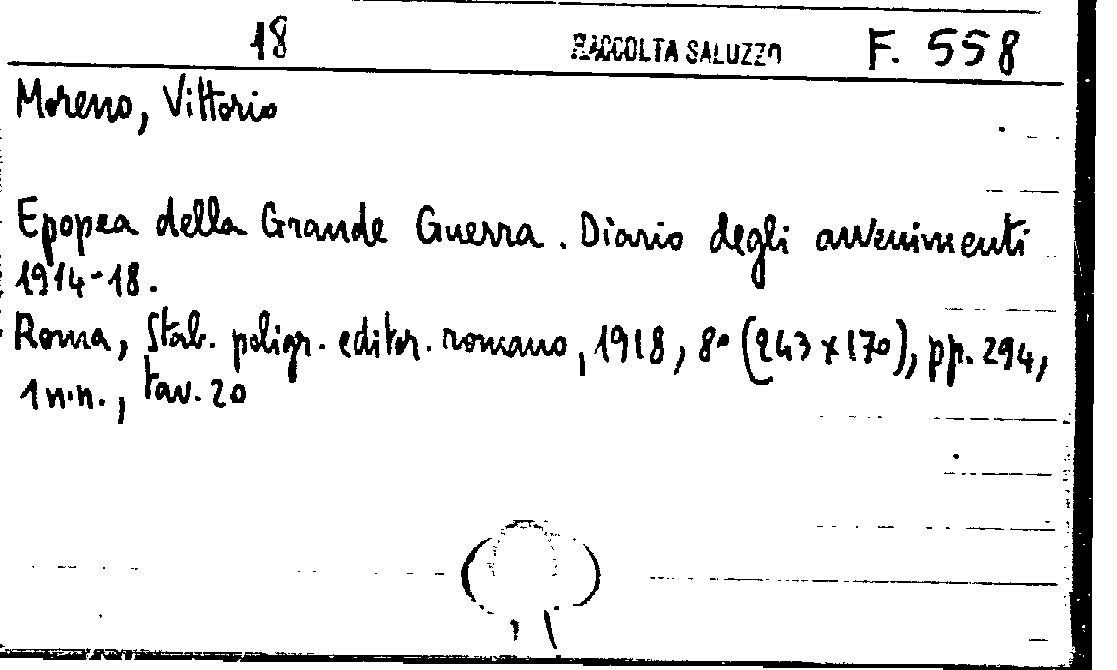 18 RACCOLTA SALUZZO F. 558
Moreno, Vittorio
Epopea della Grande Guerra. Diario degli avvenimenti
1914-18.
Roma, Stab. poligr. editor. romano, 1918, 8° (243 x 170), pp. 294,
1 n.n., tav. 20